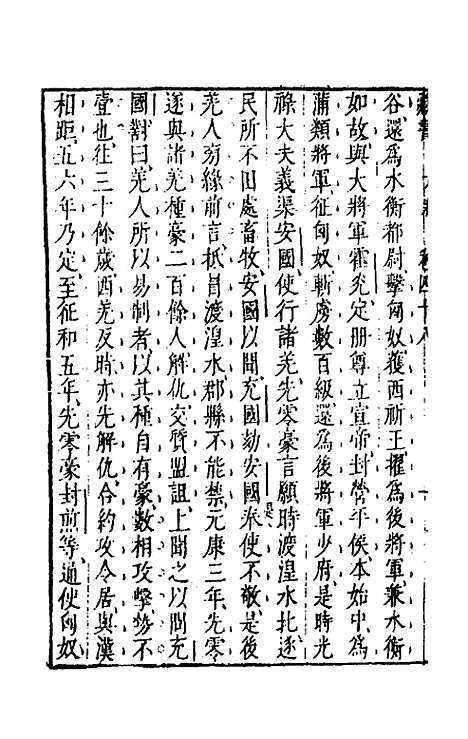 谷還爲水衡都尉擊匈奴獲西祁王擢爲後將軍兼水衡
如故與大將軍霍光定册尊立宣帝封營平侯本始中爲
蒲類將軍征匈奴斬虜數百級還爲後將軍少府是時光
祿大夫義渠安國使行諸羌先零豪言願時渡湟水北逐
民所不田處畜牧安國以聞充國劾安國奉使不敬是後
羌人旁緣前言抵冒渡湟水郡縣不能禁元康三年先零
遂與諸羌種豪二百餘人解仇交質盟詛上聞之以問充
國對曰羌人所以易制者以其種自有豪數相攻擊勢不
壹也往三十餘歲西羌反時亦先解仇合約攻令居與漢
相距五六年乃定至征和五年先零豪封煎等通使匈奴